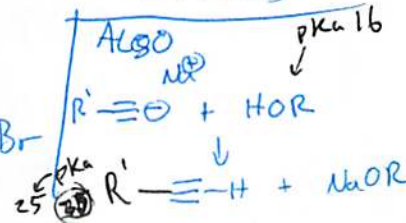 ALSO
pKa 16
Na⊕
R'—≡⊖ + HOR
Br
↓
pKa
25 R'—≡—H + NaOR